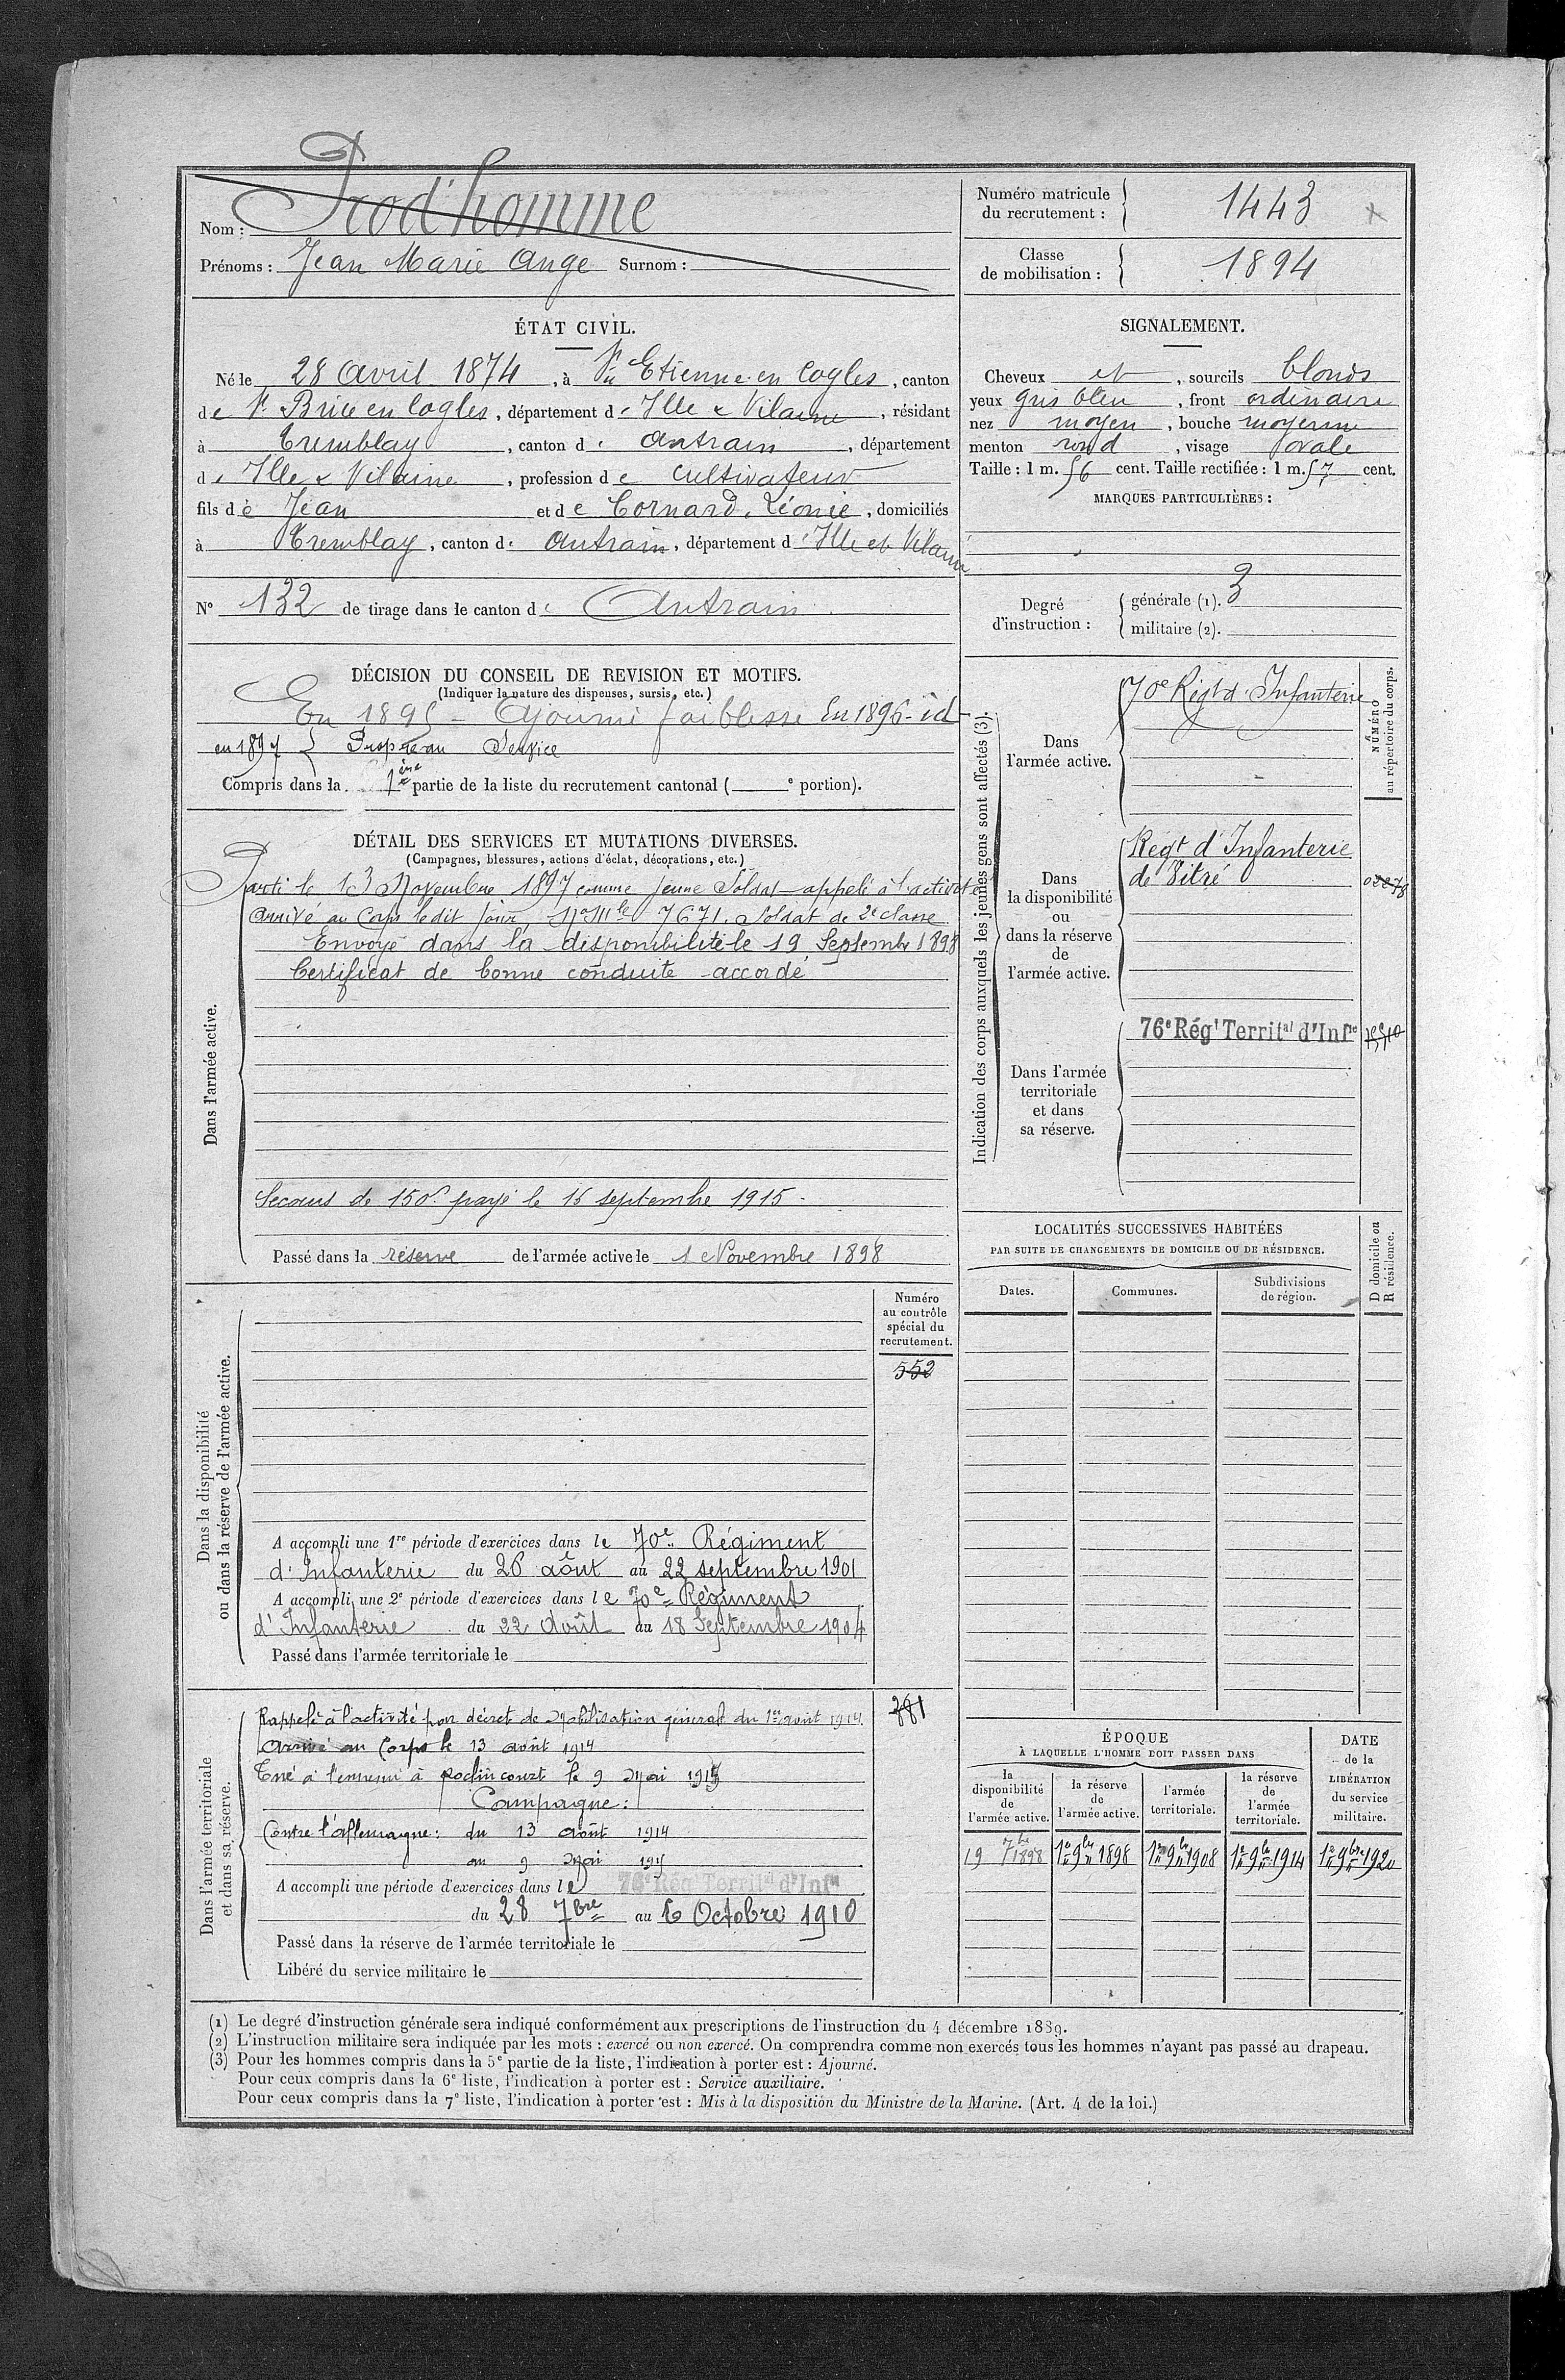 Nom : Prod'homme
Prénoms : Jean Marie Ange Surnom :
Numéro matricule du recrutement : 1443
Classe de mobilisation : 1894
ÉTAT CIVIL.
Né le 28 Avril 1874, à St Etienne en Cogles, canton
de St Brice en Cogles, département d'Ille & Vilaine, résidant
à Tremblay, canton d' Antrain, département
d'Ille & Vilaine, profession de cultivateur
fils de Jean et de Cornard, Léonie, domiciliés
à Tremblay, canton d' Antrain, département d'Ille et Vilaine
N° 132 de tirage dans le canton d' Antrain
SIGNALEMENT.
Cheveux et, sourcils blonds
yeux gris bleu, front ordinaire
nez moyen, bouche moyenne
menton rond, visage ovale
Taille : 1 m. 56 cent. Taille rectifiée : 1 m. 57 cent.
MARQUES PARTICULIÈRES :
Degré d'instruction : générale (1). 3
militaire (2).
DÉCISION DU CONSEIL DE REVISION ET MOTIFS.
(Indiquer la nature des dispenses, sursis, etc.)
En 1895 - Ajourné faiblesse En 1896 - id -
en 1897 Propre au Service
Compris dans la 1ère partie de la liste du recrutement cantonal ( e portion).
DÉTAIL DES SERVICES ET MUTATIONS DIVERSES.
(Campagnes, blessures, actions d'éclat, décorations, etc.)
Dans l'armée active.
Parti le 13 Novembre 1897 comme jeune Soldat appelé à l'activité
Arrivé au Corps ledit jour, No Mle 7671. Soldat de 2e classe
Envoyé dans la disponibilité le 19 Septembre 1898
Certificat de bonne conduite accordé
Secours de 150f payé le 16 septembre 1915 -
Passé dans la réserve de l'armée active le 1 Novembre 1898
Indication des corps auxquels les jeunes gens sont affectés (3).
NUMÉRO au répertoire du corps.
Dans l'armée active.
70e Régt d'Infanterie
Dans la disponibilité ou dans la réserve de l'armée active.
Régt d'Infanterie
de Vitré
Dans l'armée territoriale et dans sa réserve.
76e Régt Territal d'Infie
LOCALITÉS SUCCESSIVES HABITÉES
PAR SUITE DE CHANGEMENTS DE DOMICILE OU DE RÉSIDENCE.
Dates.
Communes.
Subdivisions de région.
D domicile ou R résidence.
Dans la disponibilité ou dans la réserve de l'armée active.
Numéro au contrôle spécial du recrutement.
552
A accompli une 1re période d'exercices dans le 70e Régiment
d'Infanterie du 26 août au 22 septembre 1901
A accompli une 2e période d'exercices dans le 70e Régiment
d'Infanterie du 22 Août au 18 Septembre 1904
Passé dans l'armée territoriale le
Dans l'armée territoriale et dans sa réserve.
Rappelé à l'activité par décret de mobilisation général du 1er août 1914
Arrivé au Corps le 13 août 1914
Tué à l'ennemi à Roclincourt le 9 Mai 1915
Campagne :
Contre l'Allemagne : du 13 août 1914
au 9 Mai 1915
A accompli une période d'exercices dans le 76e Rég Territal d'Infie
du 28 7bre au 6 Octobre 1910
Passé dans la réserve de l'armée territoriale le
Libéré du service militaire le
ÉPOQUE
À LAQUELLE L'HOMME DOIT PASSER DANS
la disponibilité de l'armée active.
la réserve de l'armée active.
l'armée territoriale.
la réserve de l'armée territoriale.
DATE de la LIBÉRATION du service militaire.
19 7bre 1898
1er 9bre 1898
1er 9bre 1908
1er 9bre 1914
1er 9bre 1920
(1) Le degré d'instruction générale sera indiqué conformément aux prescriptions de l'instruction du 4 décembre 1889.
(2) L'instruction militaire sera indiquée par les mots : exercé ou non exercé. On comprendra comme non exercés tous les hommes n'ayant pas passé au drapeau.
(3) Pour les hommes compris dans la 5e partie de la liste, l'indication à porter est : Ajourné.
Pour ceux compris dans la 6e liste, l'indication à porter est : Service auxiliaire.
Pour ceux compris dans la 7e liste, l'indication à porter est : Mis à la disposition du Ministre de la Marine. (Art. 4 de la loi.)